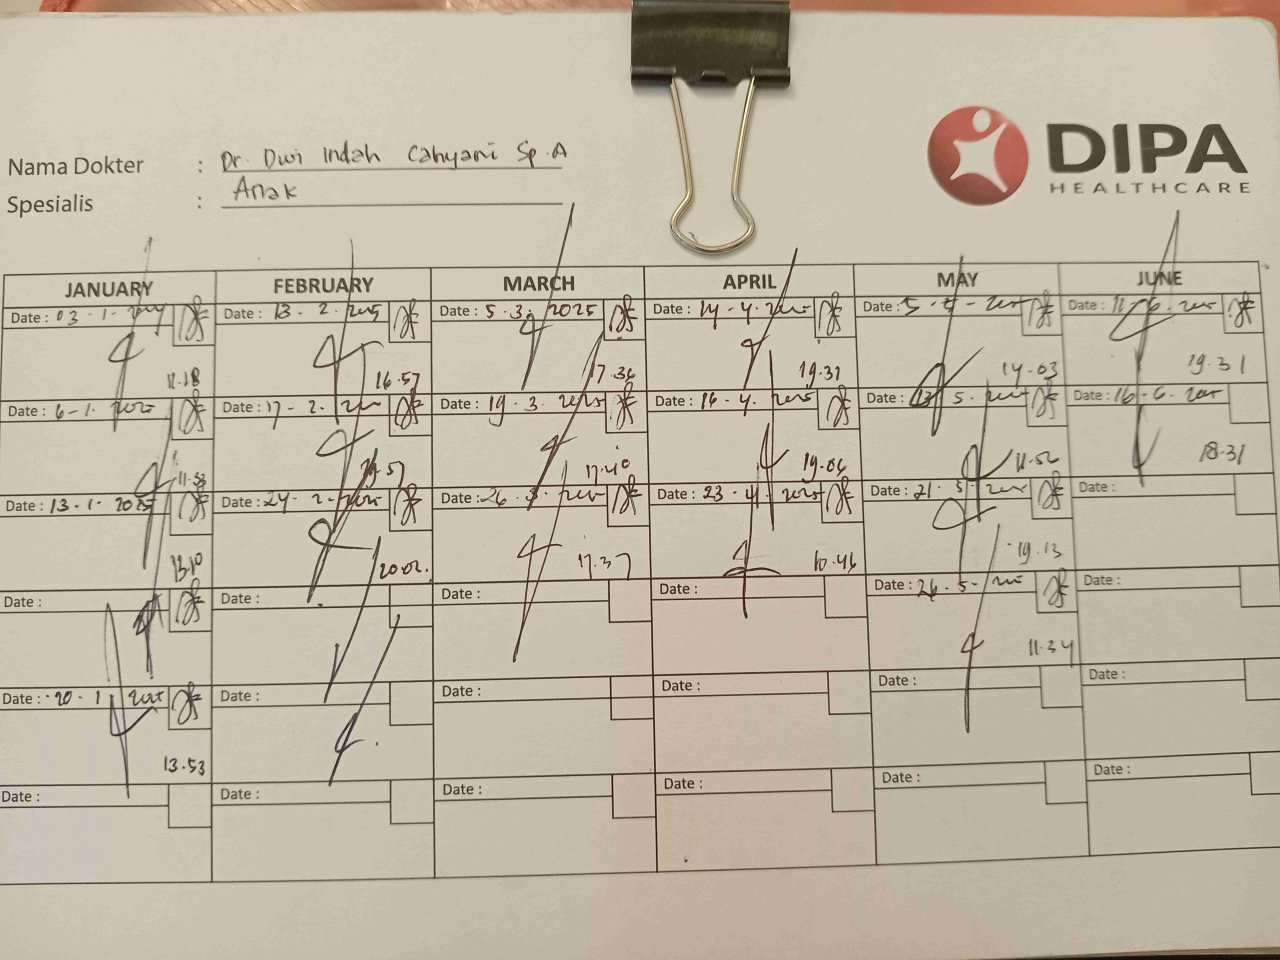 DIPA
HEALTHCARE
Nama Dokter : Dr. Dwi Indah Cahyani Sp.A
Spesialis : Anak
JANUARY FEBRUARY MARCH APRIL MAY JUNE
Date : 03-1- Date : 13-2-2025 Date : 5.3.2025 Date : 14-4-2025 Date : 5-5-2025 Date : 11-6-2025
11.18 16.57 17.36 19.31 14.03 19.31
Date : 6-1-2025 Date : 17-2-2025 Date : 19.3.2025 Date : 16-4-2025 Date : 5-2025 Date : 16-6-2025
11.53 19.57 17.40 19.06 11.56 18.31
Date : 13-1-2025 Date : 24-2-2025 Date : 26-3-2025 Date : 23-4-2025 Date : 21-5-2025 Date :
13.10 20.02. 17.37 10.46 19.13
Date : Date : Date : Date : Date : 26-5-2025 Date :
11.34
Date : 20-1-2025 Date : Date : Date : Date : Date :
13.53
Date : Date : Date : Date : Date : Date :